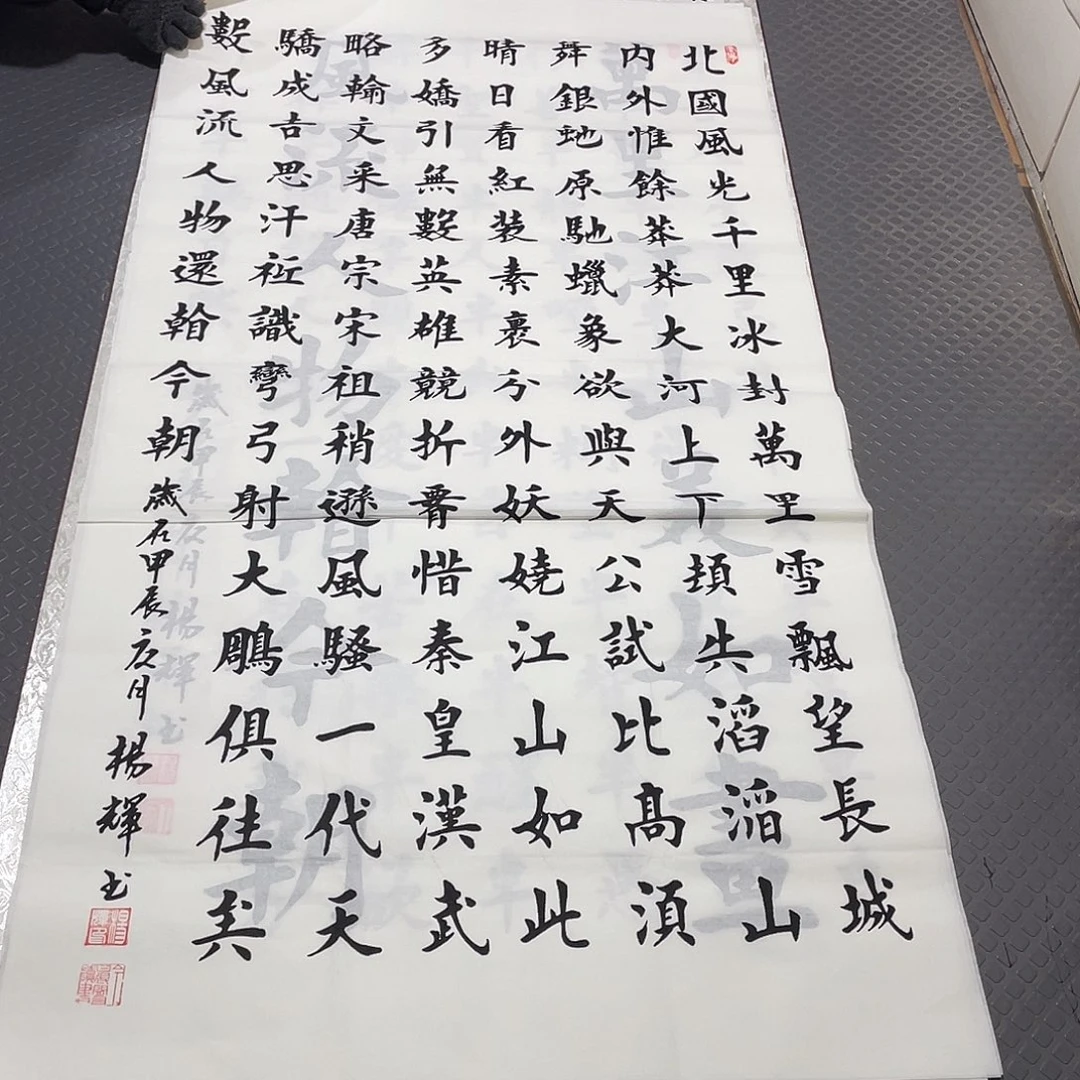 北國風光千里冰封萬里雪飄望長城
内外惟餘莽莽大河上下頓失滔滔山
舞銀虵原馳蠟象欲與天公試比高須
晴日看紅装素裹分外妖嬈江山如此
多嬌引無數英雄競折腰惜秦皇漢武
略輸文采唐宗宋祖稍遜風騷一代天
驕成吉思汗祗識彎弓射大鵰俱往矣
數風流人物還看今朝
歲在甲辰夏月楊輝书